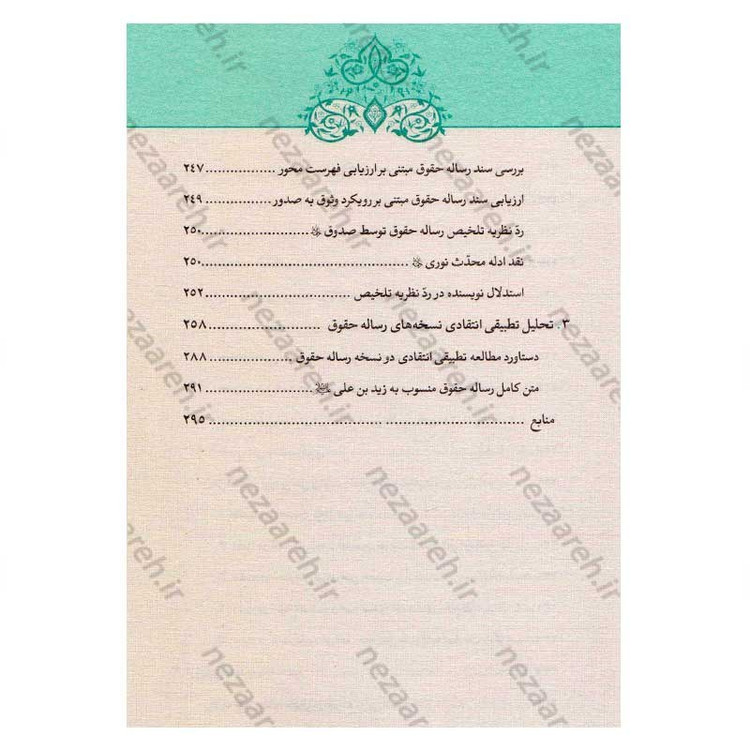 بررسی سند رساله حقوق مبتنی بر ارزیابی فهرست محور .................. ۲۴۷
ارزیابی سند رساله حقوق مبتنی بر رویکرد وثوق به صدور .................. ۲۴۹
ردّ نظریه تلخیص رساله حقوق توسط صدوق .................. ۲۵۰
نقد ادله محدّث نوری .................. ۲۵۰
استدلال نویسنده در ردّ نظریه تلخیص .................. ۲۵۲
۳. تحلیل تطبیقی انتقادی نسخه‌های رساله حقوق .................. ۲۵۸
دستاورد مطالعه تطبیقی انتقادی دو نسخه رساله حقوق .................. ۲۸۸
متن کامل رساله حقوق منسوب به زید بن علی .................. ۲۹۱
منابع .................. ۲۹۵
nezaareh.ir